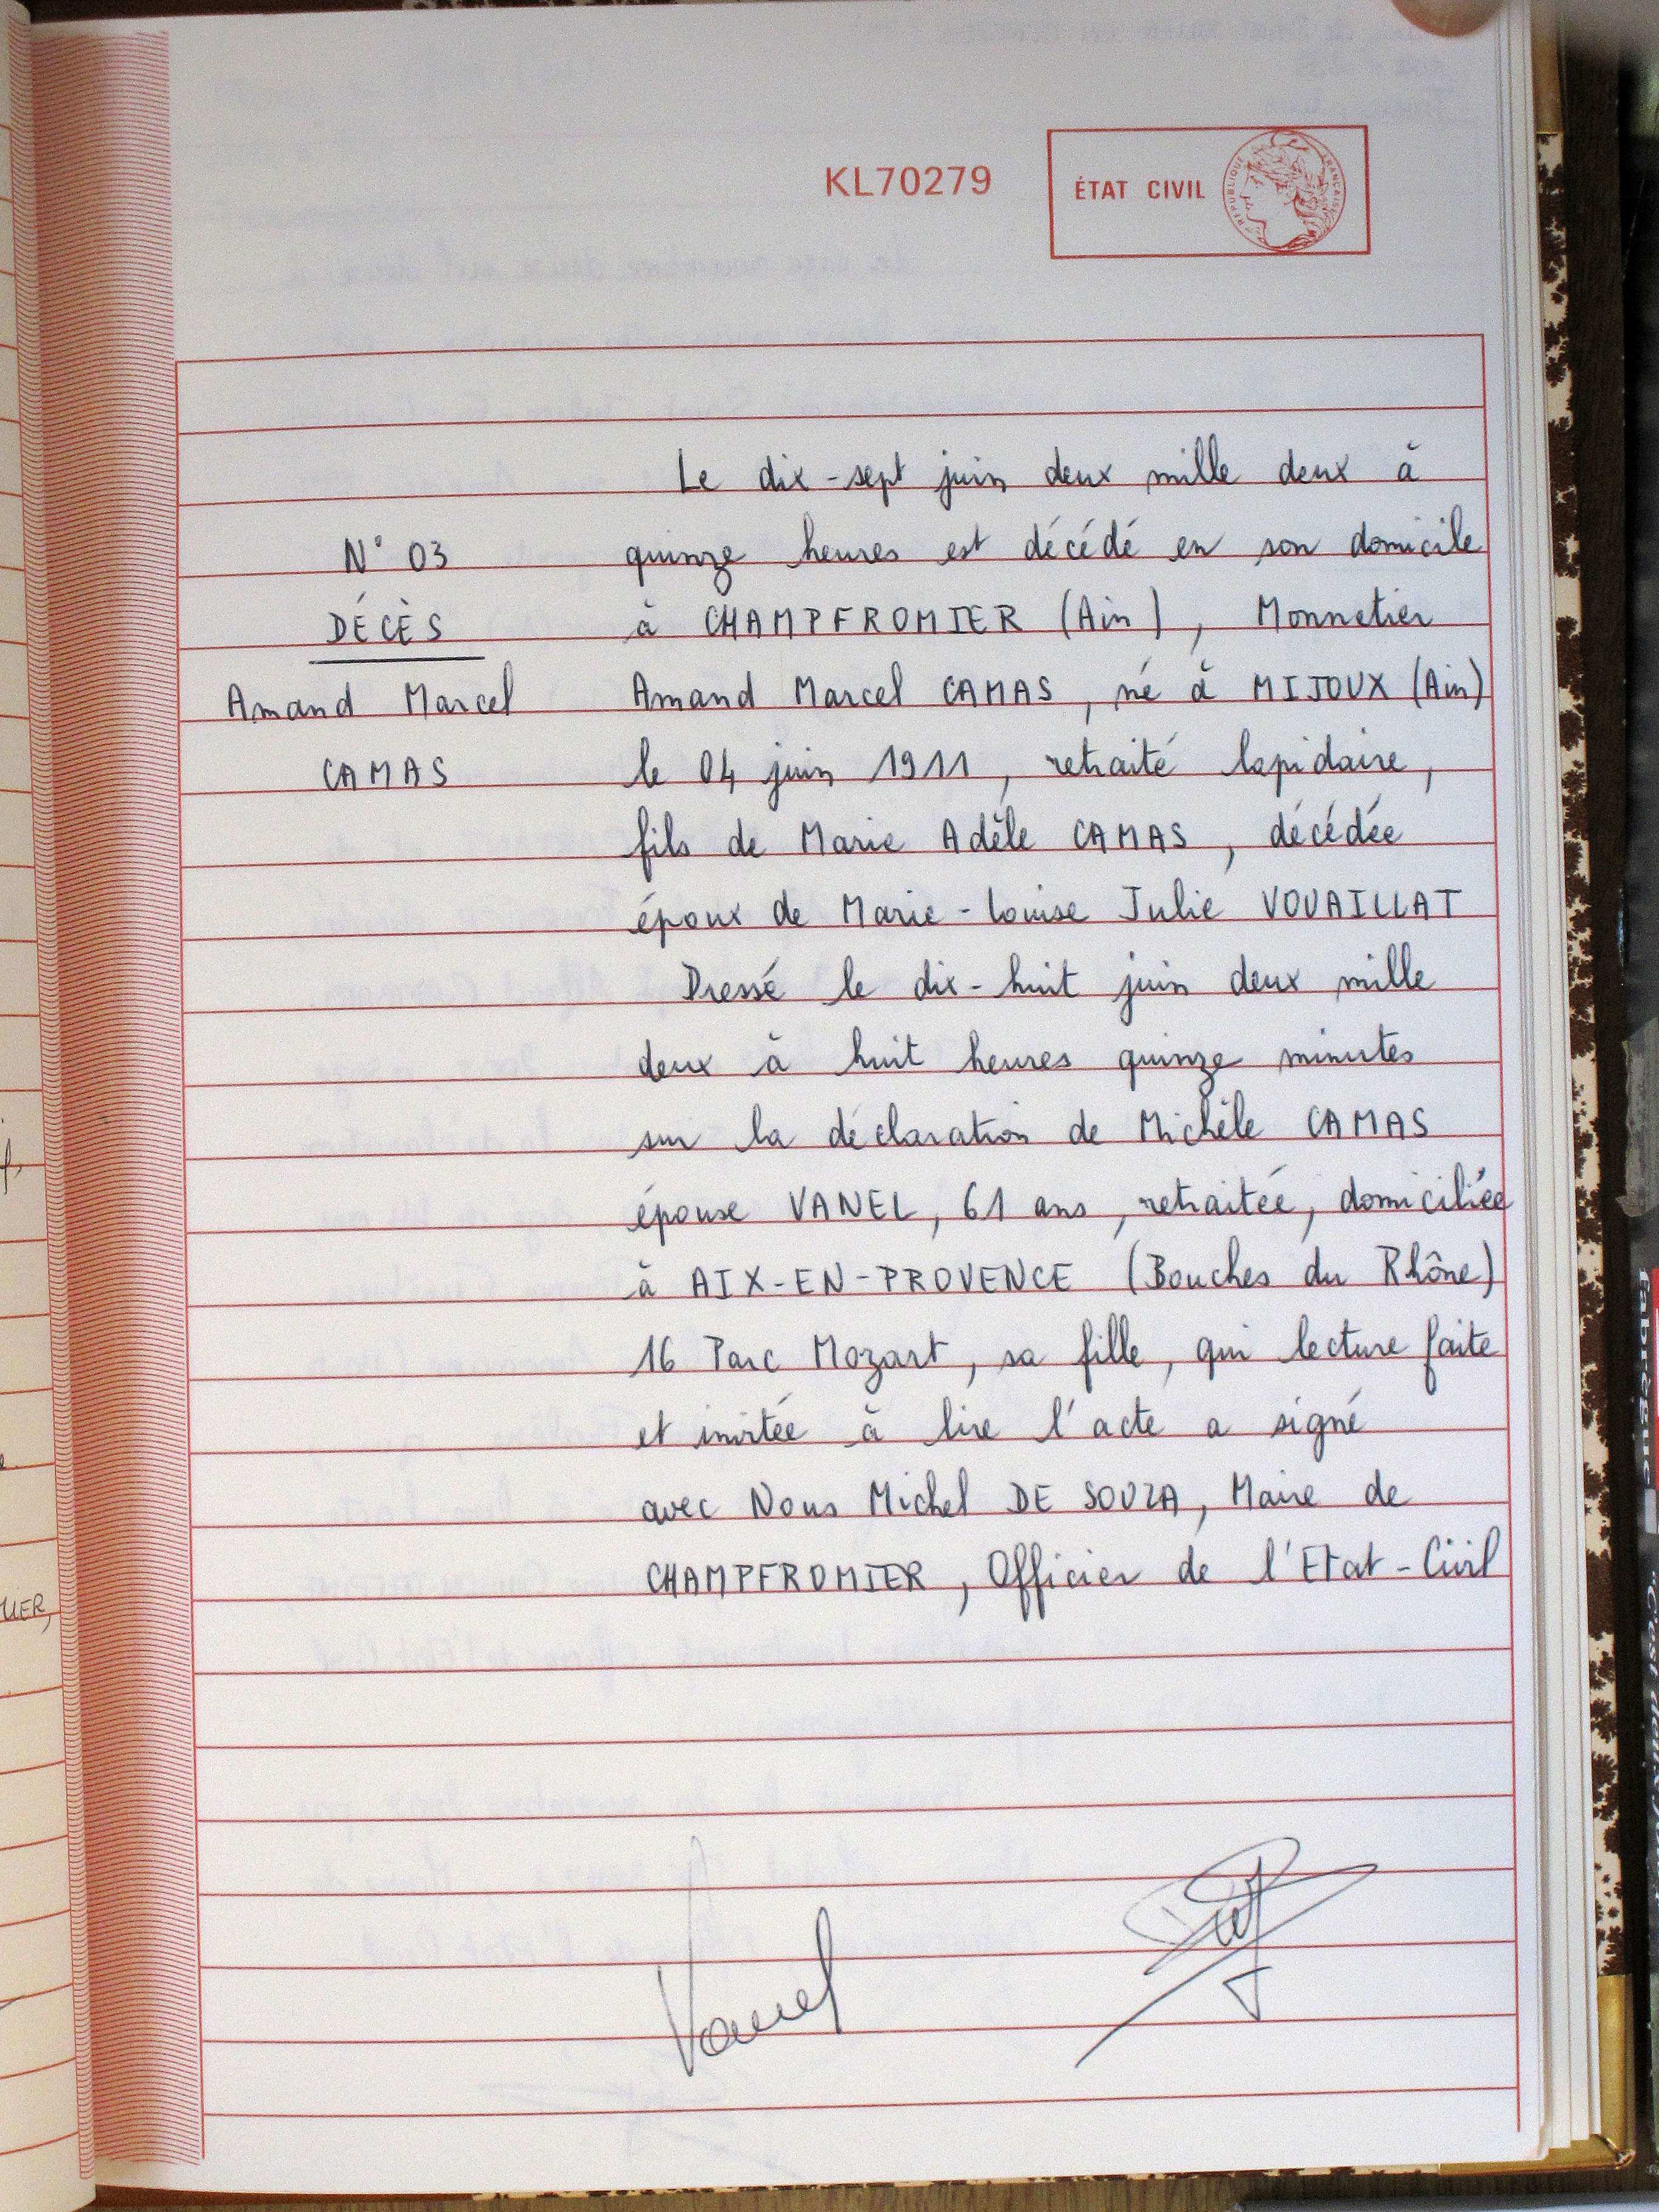 KL70279
ÉTAT CIVIL
RÉPUBLIQUE FRANÇAISE
N° 03
DÉCÈS
Amand Marcel
CAMAS
Le dix-sept juin deux mille deux à
quinze heures est décédé en son domicile
à CHAMPFROMIER (Ain), Monnetier
Amand Marcel CAMAS, né à MIJOUX (Ain)
le 04 juin 1911, retraité lapidaire,
fils de Marie Adèle CAMAS, décédée
époux de Marie-Louise Julie VOUAILLAT
Dressé le dix-huit juin deux mille
deux à huit heures quinze minutes
sur la déclaration de Michèle CAMAS
épouse VANEL, 61 ans, retraitée, domiciliée
à AIX-EN-PROVENCE (Bouches du Rhône)
16 Parc Mozart, sa fille, qui lecture faite
et invitée à lire l'acte a signé
avec Nous Michel DE SOUZA, Maire de
CHAMPFROMIER, Officier de l'Etat-Civil
Vanel